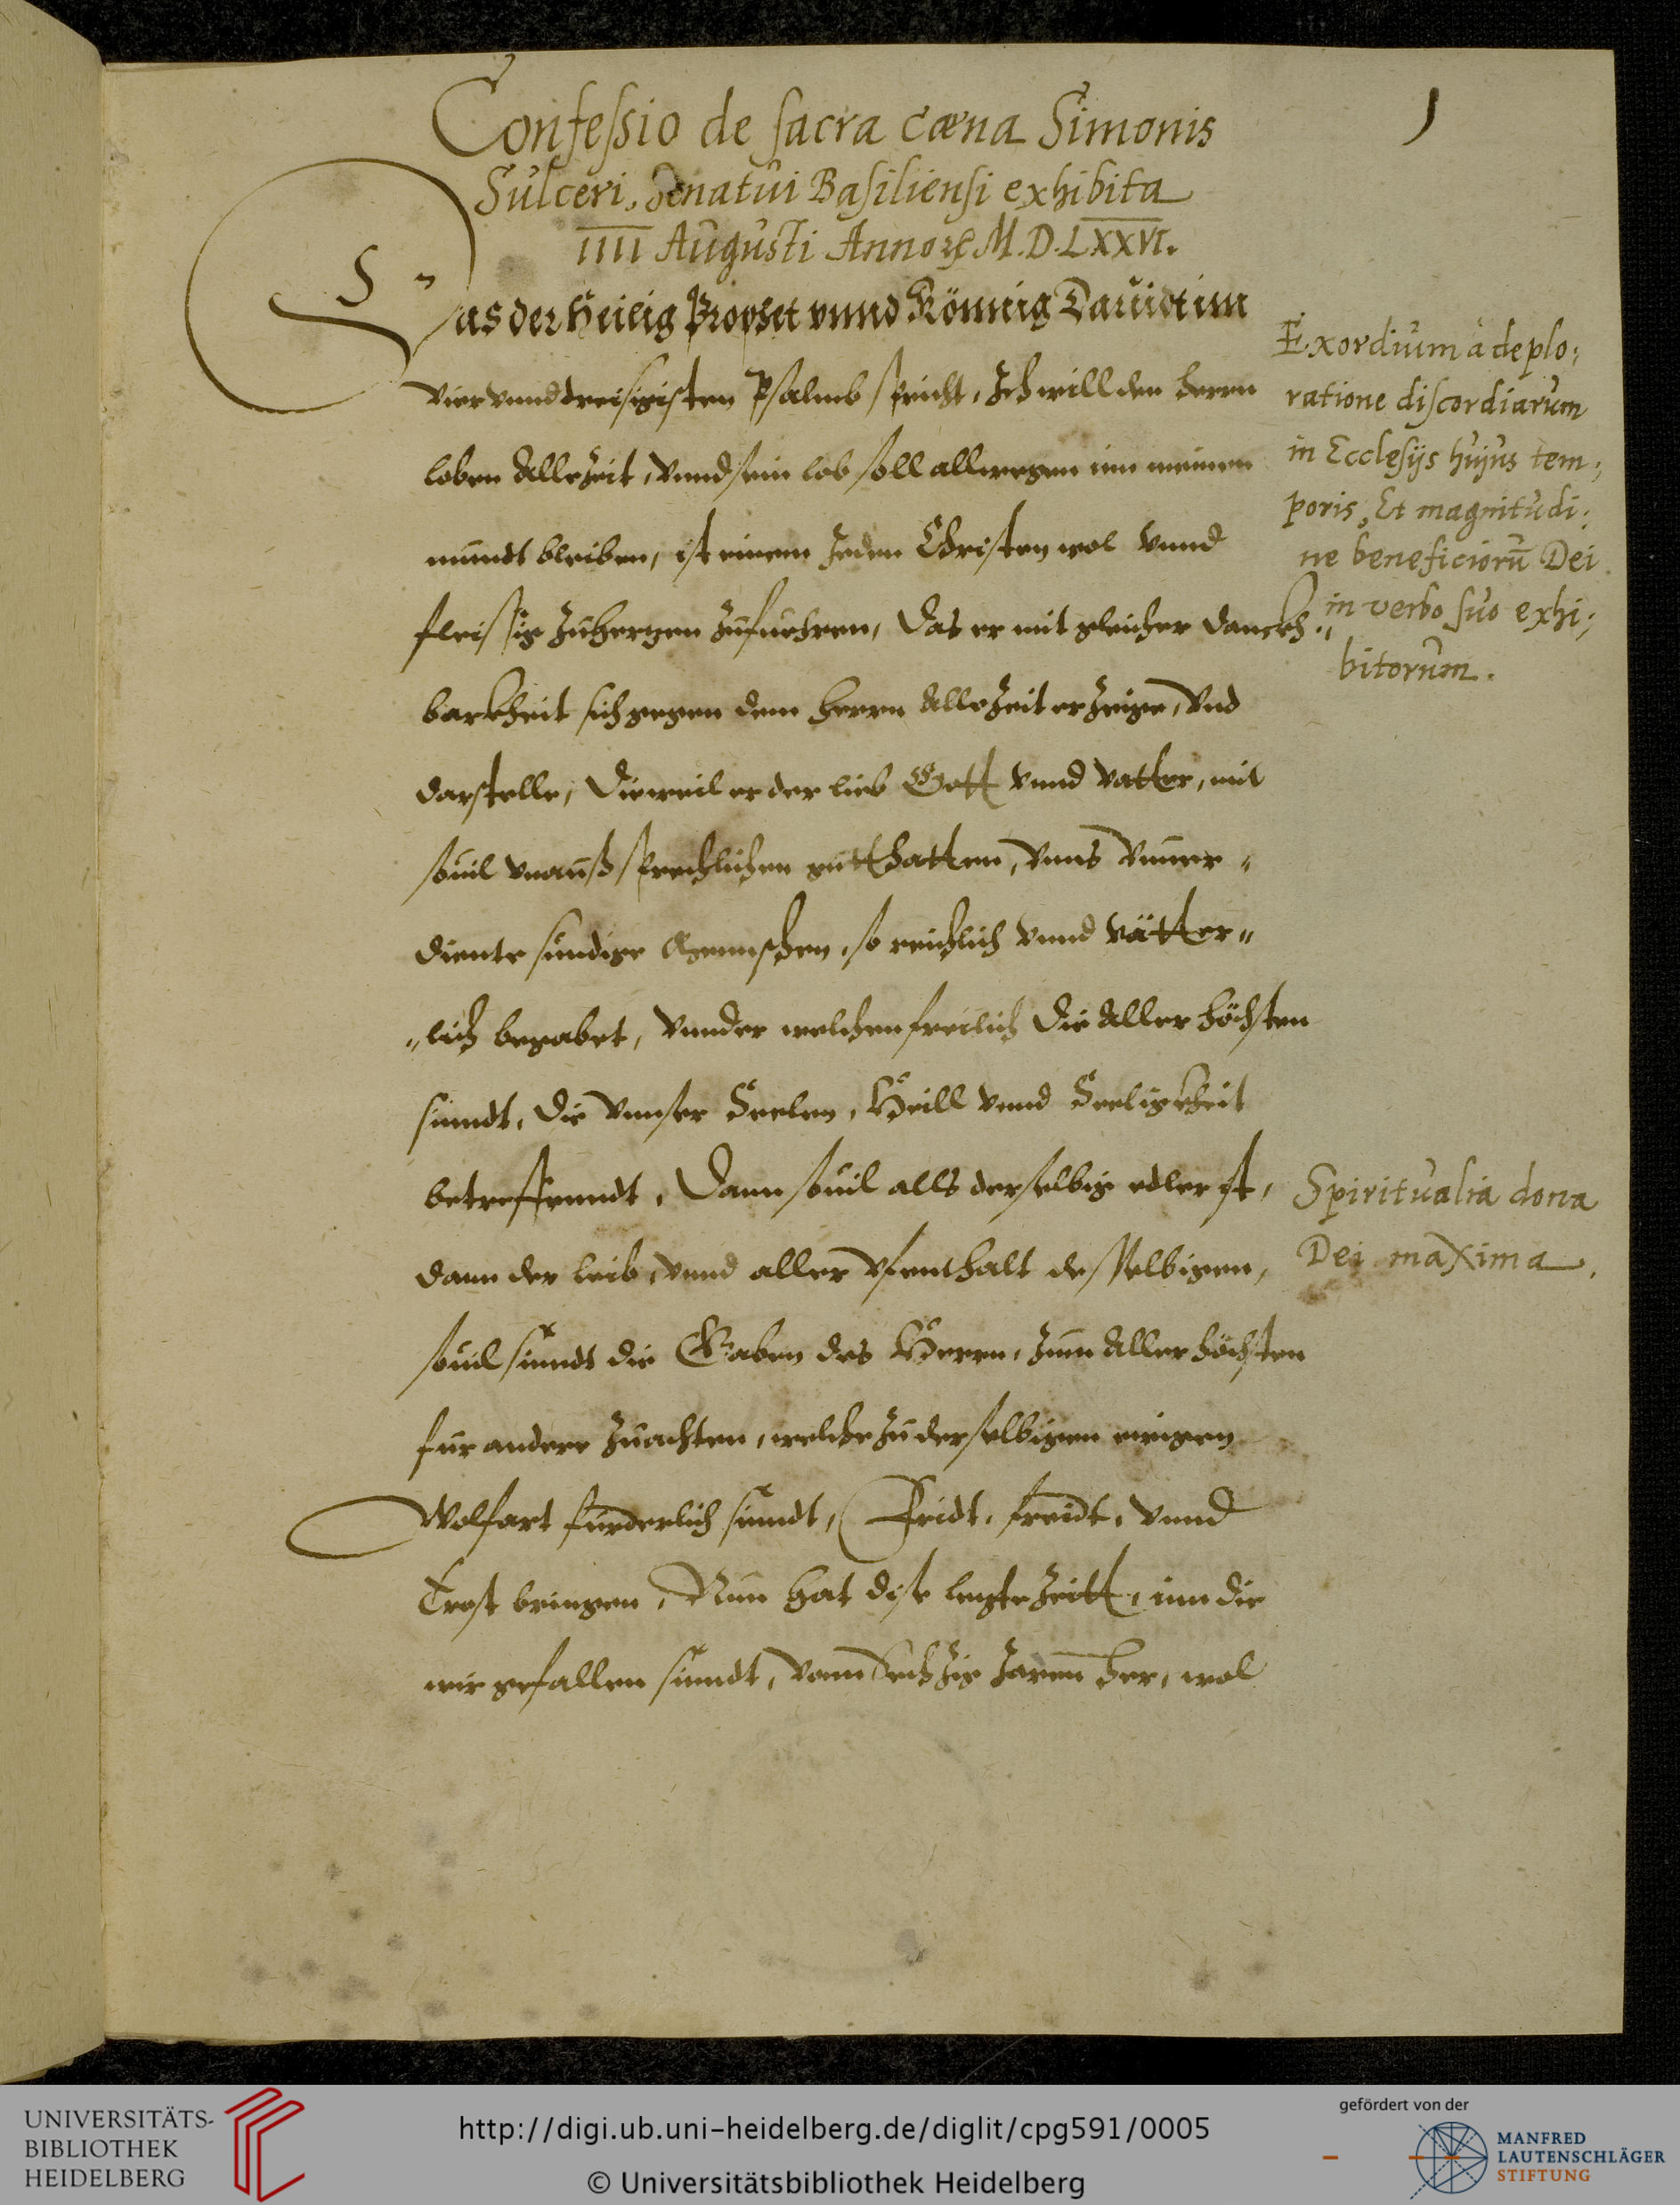 1
Confessio de sacra cæna Simonis
Sulceri, Senatui Basiliensi exhibita
IIII Augusti Annoꝝ M.D.LXXVI.
Das der Heilig Prophet vnnd Könnig Dauidt im
viervnnddreisigisten Psalmb spricht, Ich will den herrn
loben Allezeit, vnnd sein lob soll allwegen inn meinem
mundt bleiben, ist einem Jeden Christen wol vnnd
fleissig zuhertzen zufuehren, das er mit gleicher danckh„
barkheit sich gegen dem herrn Allezeit erzeige, vnd
darstelle, dieweil er der lieb Gott vnnd vatter, mit
souil vnaußsprechlichen gutthatten, vnns vnuer„
diente sundige Menschen, so reichlich vnnd vätter„
„lich begabet, vnnder welchen freilich die Aller höchsten
sinndt, die vnnser Seelen, Heill vnnd Seeligkheit
betreffenndt, Dann souil alls derselbig edler ist,
dann der leib, vnnd aller vfenthalt desselbigen,
souil sinndt die Gaben des Herrn, zum Aller höchsten
fur andere zuachten, welche zu derselbigen ewigen
Wolfart furderlich sinndt, Fridt, freidt, vnnd
Trost bringen, Nun hat dise letzte Zeitt, inn die
wir gefallen sinndt, vonn Sechzig Jaren her, wol
Exordium à deplo:
ratione discordiarum
in Ecclesijs hujus tem:
poris, Et magnitudi:
ne beneficiorū Dei
in verbo suo exhi:
bitorum.
Spiritualia dona
Dei maxima.
UNIVERSITÄTS-
BIBLIOTHEK
HEIDELBERG
http://digi.ub.uni-heidelberg.de/diglit/cpg591/0005
© Universitätsbibliothek Heidelberg
gefördert von der
MANFRED
LAUTENSCHLÄGER
STIFTUNG